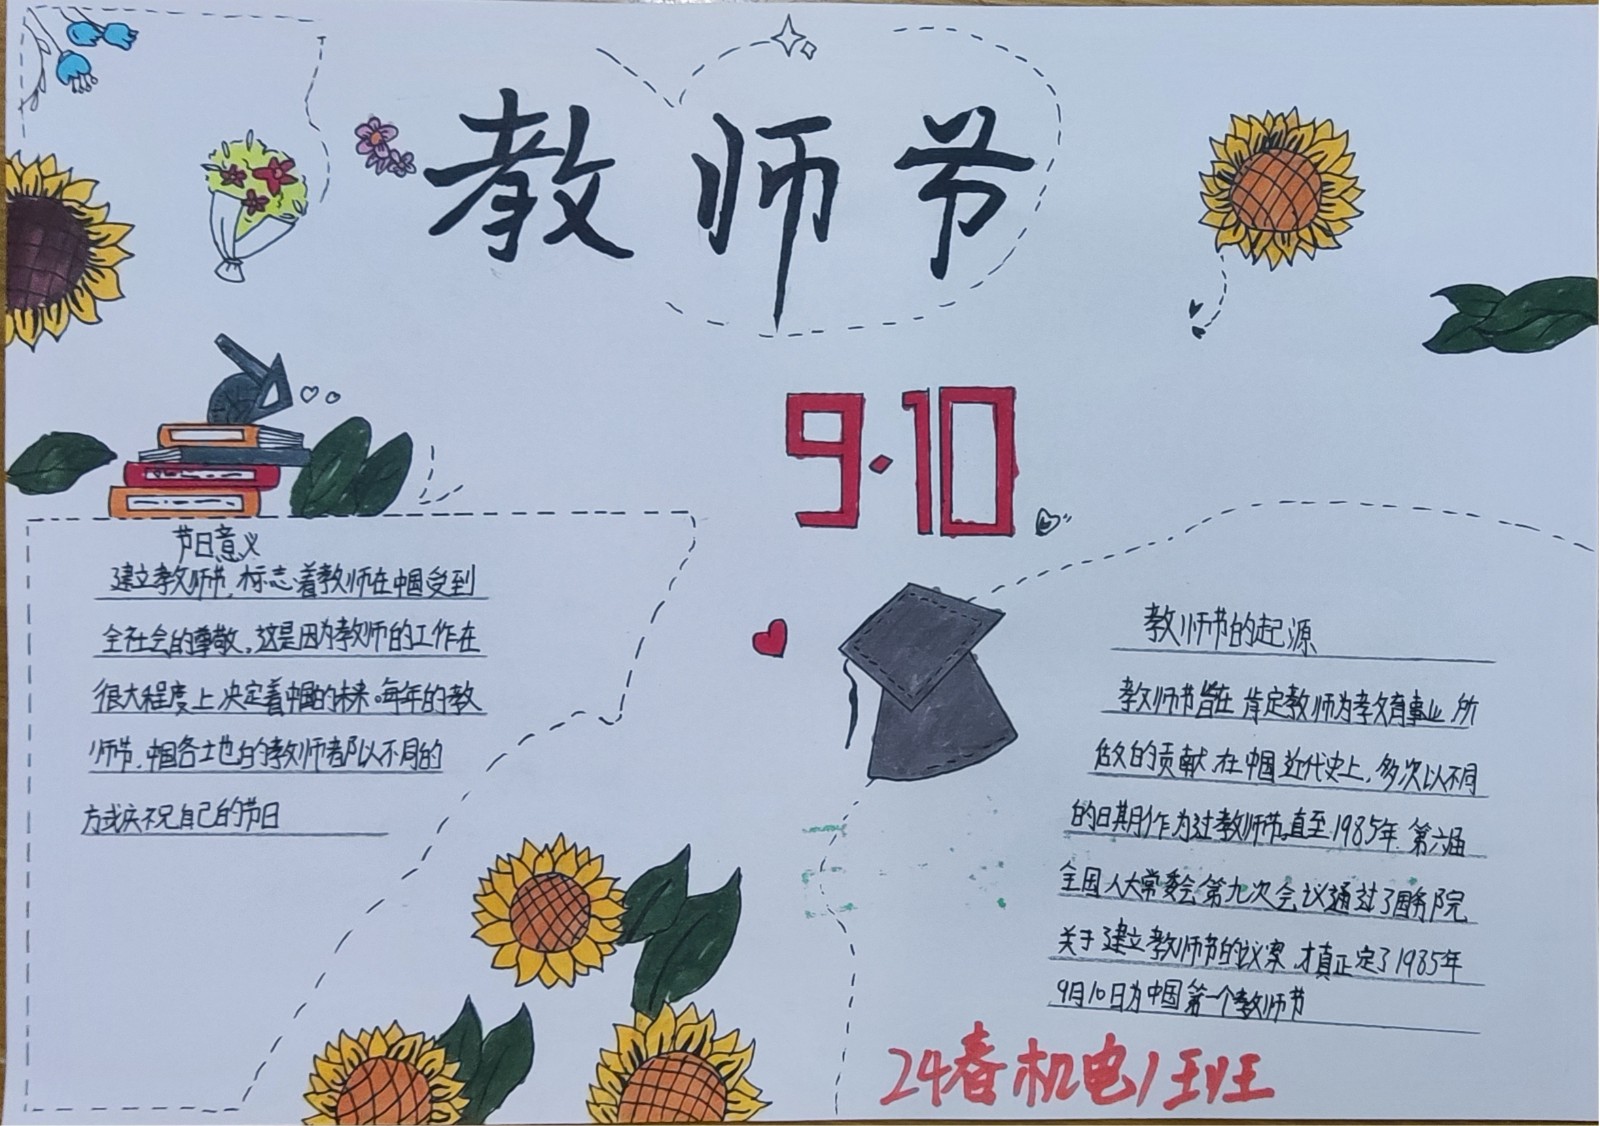 教师节
9·10
节日意义
建立教师节,标志着教师在中国受到
全社会的尊敬,这是因为教师的工作在
很大程度上决定着中国的未来。每年的教
师节,中国各地的教师都以不同的
方式庆祝自己的节日
教师节的起源
教师节旨在肯定教师为教育事业所
做的贡献,在中国近代史上,多次以不同
的日期作为过教师节。直至1985年,第六届
全国人大常委会第九次会议通过了国务院
关于建立教师节的议案,才真正定了1985年
9月10日为中国第一个教师节
24春机电1班